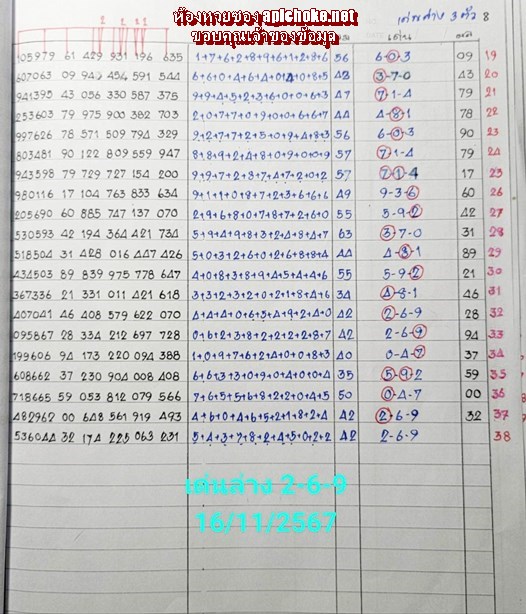 ห้องหวยของ apichoke.net
ขอบคุณเจ้าของข้อมูล
เด่นล่าง 3 ตัว 8
105979 61 429 931 196 635 1+7+6+2+8+9+6+1+2+8+6 56 6-0-3 09 19
607063 09 943 454 591 544 43 3-7-0 43 20
941395 43 056 330 587 375 9+9+4+5+2+3+6+0+0+6+3 47 7-1-4 79 21
253603 79 975 900 382 703 2+0+7+7+0+9+0+0+6+6+7 44 4-8-1 78 22
997626 78 571 509 794 329 9+2+7+7+2+5+0+9+4+8+3 56 6-0-3 90 23
803481 90 122 809 559 947 8+8+9+2+4+8+0+9+0+0+9 57 7-1-4 79 24
943598 79 729 727 154 200 9+9+7+2+8+7+4+7+2+0+2 57 7-1-4 17 23
980116 17 104 763 833 634 9+1+1+0+8+7+2+3+6+6+6 49 9-3-6 60 26
205690 60 885 747 137 070 2+9+6+8+0+7+8+7+2+6+0 55 5-9-2 42 27
530593 42 194 364 421 734 5+9+4+9+8+3+2+4+8+4+7 63 3-7-0 31 28
318504 31 428 016 447 426 5+0+3+1+2+6+0+2+6+8+8+4 44 4-8-1 89 29
434503 89 839 975 778 647 4+0+8+3+8+9+4+5+4+4+6 55 5-9-2 21 30
367336 21 331 011 421 618 3+3+2+3+2+0+2+1+8+4+6 34 4-8-1 46 31
407041 46 408 579 622 070 4+4+4+0+6+3+4+9+2+4+0 42 2-6-9 28 32
095867 28 334 212 697 728 0+6+2+3+8+2+2+2+2+8+7 42 2-6-9 94 33
199606 94 173 220 094 388 1+0+9+7+6+2+4+0+0+8+3 40 0-4-7 37 34
608662 37 230 904 008 408 6+6+3+3+0+9+0+4+0+0+4 35 5-9-2 59 35
718665 59 053 812 079 566 7+6+5+5+6+8+2+2+0+4+5 50 0-4-7 00 36
482962 00 648 561 919 493 4+6+0+4+6+5+2+1+8+2+4 42 2-6-9 32 37
536044 32 174 225 063 231 5+4+3+7+8+2+4+5+0+2+2 42 2-6-9 38
เด่นล่าง 2-6-9
16/11/2567